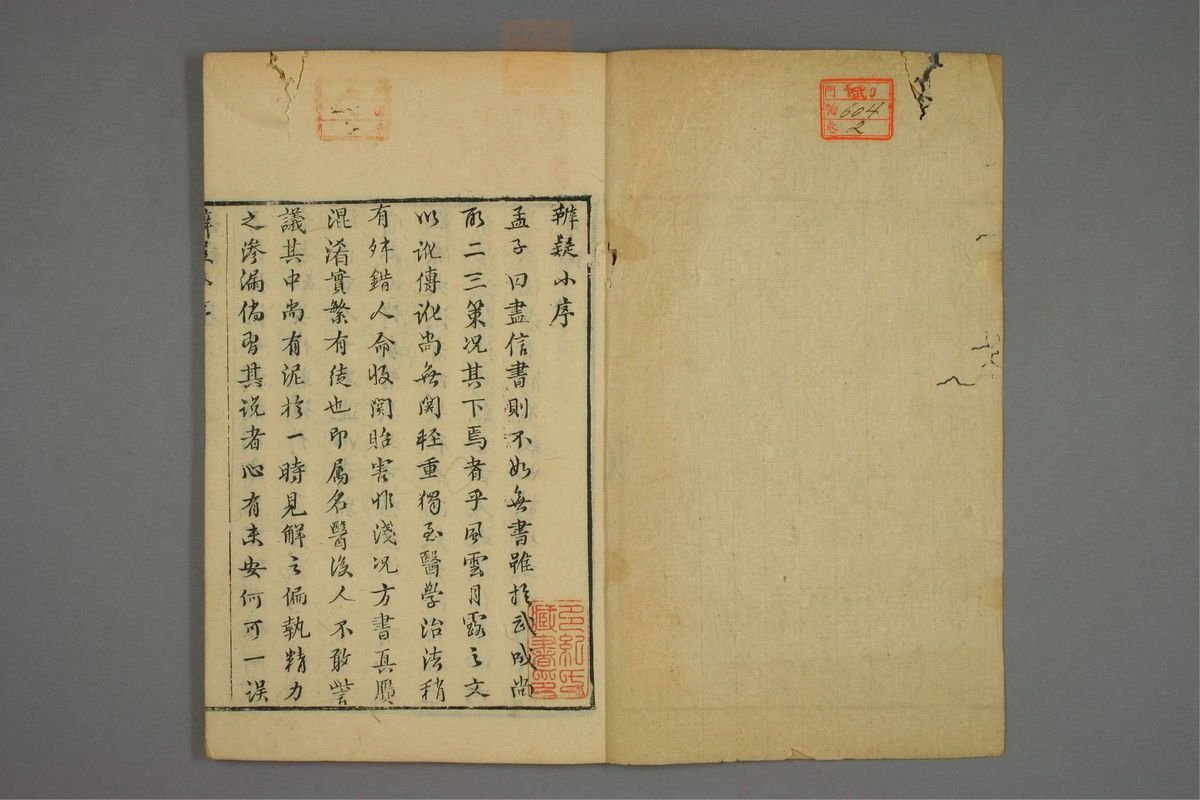 門
號 604
卷 2
辨疑小序
孟子曰盡信書則不如無書雖於武成尚
取二三策况其下焉者乎風雲月露之文
以訛傳訛尚無関輕重獨至醫學治法稍
有舛錯人命攸関貽害非淺况方書真贋
混淆實繁有徒也即属名醫後人不敢訾
議其中尚有泥於一時見解之偏執精力
之滲漏倘習其説者心有未安何可一误
藏書印